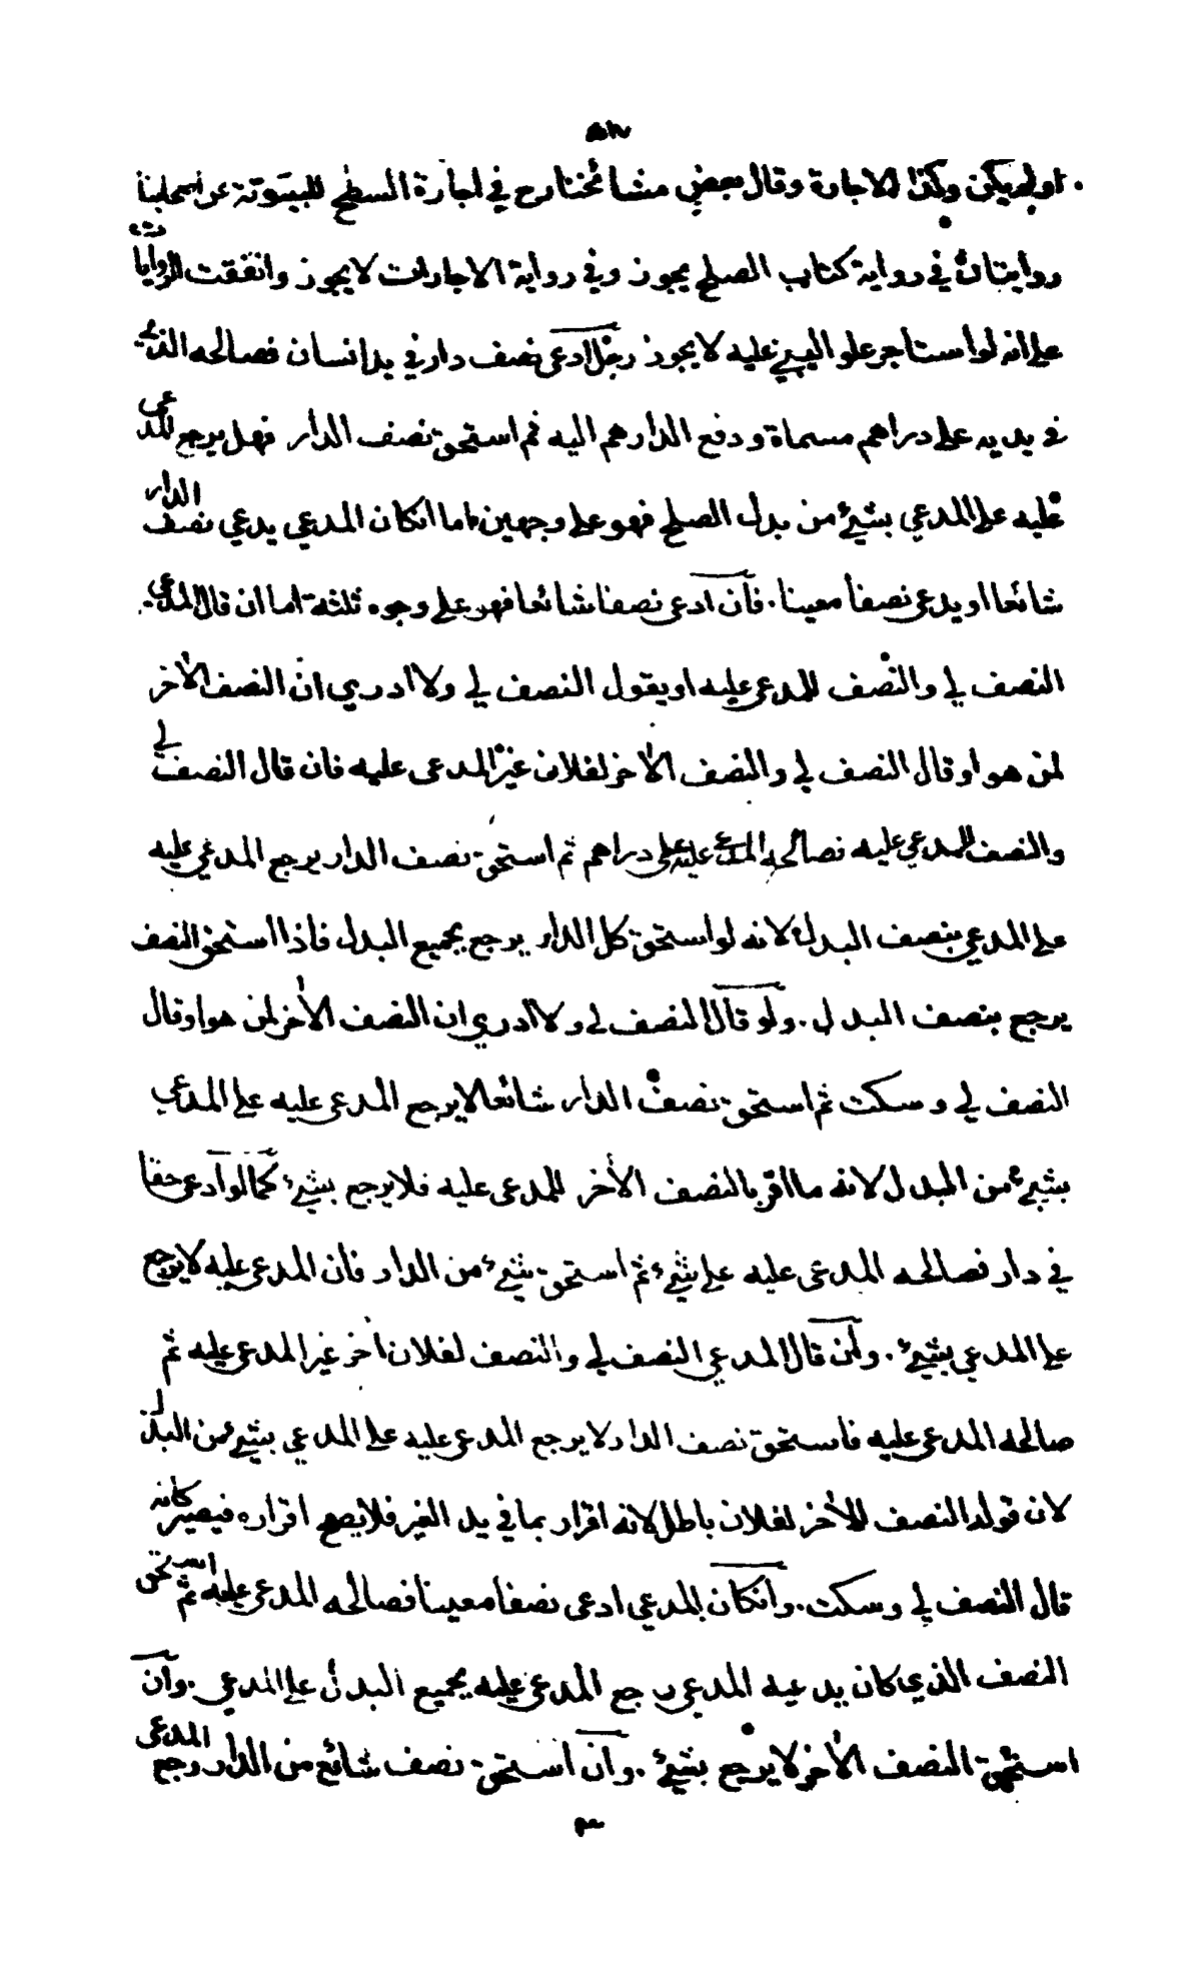 او لم يكن وكذا الاجارة وقال بعض مشائخنا رح في اجارة السطح للبيتوتة عن اصحابنا
روايتان في رواية كتاب الصلح يجوز وفي رواية الاجارات لا يجوز واتفقت الروايات
على انه لو استاجر علو البيت عليه لا يجوز رجل ادعى نصف دار في يد انسان فصالحه الذي
في يديه على دراهم مسماة ودفع الدراهم اليه ثم استحق نصف الدار فهل يرجع المدعى
عليه على المدعي بشيء من بدل الصلح فهو على وجهين اما انكان المدعي يدعي نصف الدار
شائعا او يدعى نصفا معينا . فان ادعى نصفا شائعا فهو على وجوه ثلثة اما ان قال المدعي
النصف لي والنصف للمدعى عليه او يقول النصف لي ولا ادري ان النصف الأخر
لمن هو او قال النصف لي والنصف الأخر لفلان غير المدعى عليه فان قال النصف لي
والنصف للمدعي عليه فصالحه المدعى عليه على دراهم ثم استحق نصف الدار يرجع المدعى عليه
على المدعي بنصف البدل لانه لو استحق كل الدار يرجع بجميع البدل فاذا استحق النصف
يرجع بنصف البدل . ولو قال النصف لي ولا ادري ان النصف الأخر لمن هو او قال
النصف لي وسكت ثم استحق نصف الدار شائعا لا يرجع المدعى عليه على المدعي
بشيء من البدل لانه ما اقر بالنصف الأخر للمدعى عليه فلا يرجع بشيء كما لو ادعى حقا
في دار فصالحه المدعى عليه على شيء ثم استحق شيء من الدار فان المدعى عليه لا يرجع
على المدعي بشيء . وان قال المدعي النصف لي والنصف لفلان أخر غير المدعى عليه ثم
صالحه المدعى عليه فاستحق نصف الدار لا يرجع المدعى عليه على المدعي بشيء من البدل
لان قوله النصف الأخر لفلان باطل لانه اقرار بما في يد الغير فلا يصح اقراره فيصير كانه
قال النصف لي وسكت . وانكان المدعي ادعى نصفا معينا فصالحه المدعى عليه ثم استحق
النصف الذي كان يدعيه المدعي يرجع المدعى عليه بجميع البدل على المدعي . وان
استحق النصف الأخر لا يرجع بشيء . وان استحق نصف شائع من الدار رجع المدعى